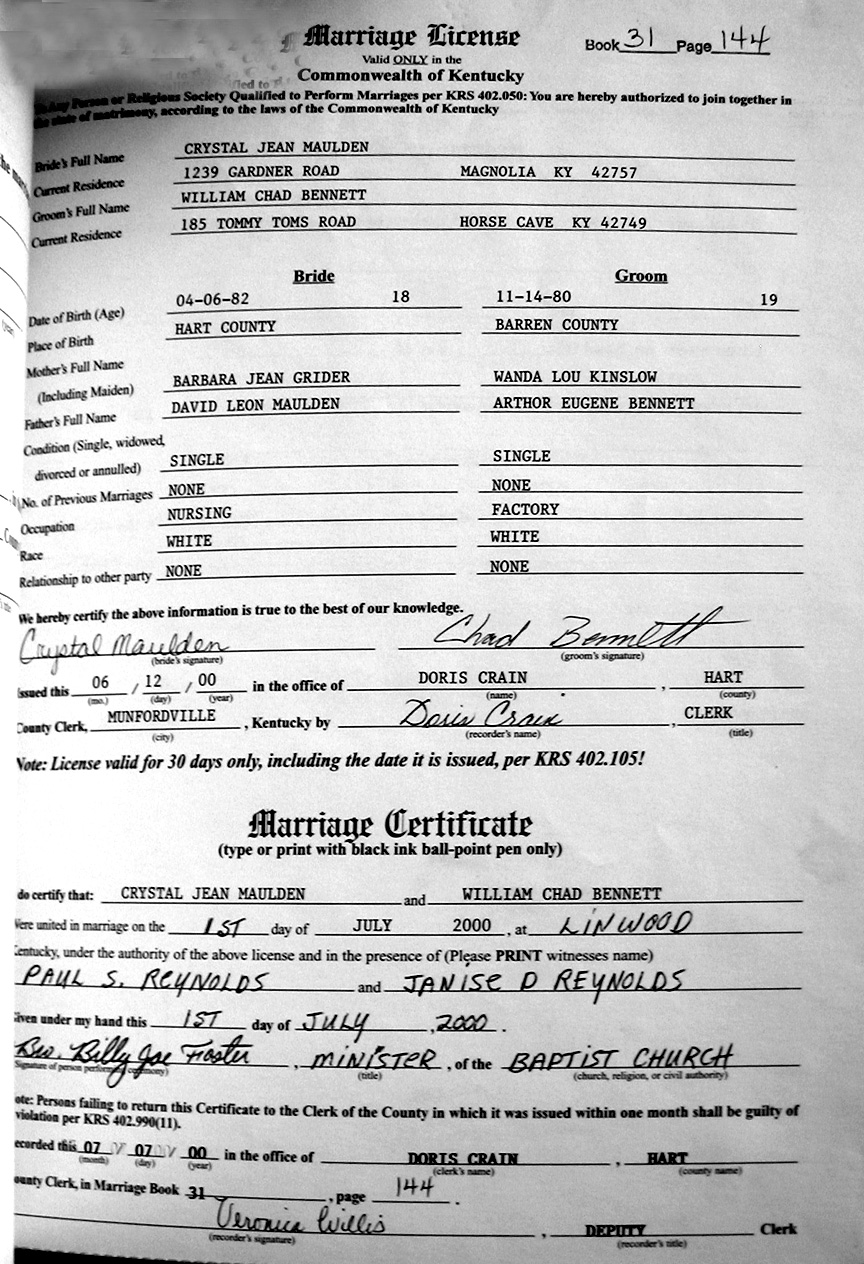 Marriage License
Book 31 Page 144
Valid ONLY in the
Commonwealth of Kentucky
Any Person or Religious Society Qualified to Perform Marriages per KRS 402.050: You are hereby authorized to join together in
the state of matrimony, according to the laws of the Commonwealth of Kentucky
Bride's Full Name CRYSTAL JEAN MAULDEN
Current Residence 1239 GARDNER ROAD MAGNOLIA KY 42757
Groom's Full Name WILLIAM CHAD BENNETT
Current Residence 185 TOMMY TOMS ROAD HORSE CAVE KY 42749
Bride Groom
Date of Birth (Age) 04-06-82 18 11-14-80 19
Place of Birth HART COUNTY BARREN COUNTY
Mother's Full Name
(Including Maiden) BARBARA JEAN GRIDER WANDA LOU KINSLOW
Father's Full Name DAVID LEON MAULDEN ARTHOR EUGENE BENNETT
Condition (Single, widowed,
divorced or annulled) SINGLE SINGLE
No. of Previous Marriages NONE NONE
Occupation NURSING FACTORY
Race WHITE WHITE
Relationship to other party NONE NONE
We hereby certify the above information is true to the best of our knowledge.
Crystal Maulden Chad Bennett
(bride's signature) (groom's signature)
issued this 06 / 12 / 00 in the office of DORIS CRAIN , HART
(mo.) (day) (year) (name) (county)
County Clerk, MUNFORDVILLE , Kentucky by Doris Crain , CLERK
(city) (recorder's name) (title)
Note: License valid for 30 days only, including the date it is issued, per KRS 402.105!
Marriage Certificate
(type or print with black ink ball-point pen only)
do certify that: CRYSTAL JEAN MAULDEN and WILLIAM CHAD BENNETT
Were united in marriage on the 1ST day of JULY 2000 , at LINWOOD
Kentucky, under the authority of the above license and in the presence of (Please PRINT witnesses name)
PAUL S. REYNOLDS and JANISE D REYNOLDS
Given under my hand this 1ST day of JULY , 2000 .
Bro. Billy Joe Foster , MINISTER , of the BAPTIST CHURCH
(Signature of person performing ceremony) (title) (church, religion, or civil authority)
ote: Persons failing to return this Certificate to the Clerk of the County in which it was issued within one month shall be guilty of
violation per KRS 402.990(11).
ecorded this 07 / 07 / 00 in the office of DORIS CRAIN , HART
(month) (day) (year) (clerk's name) (county name)
ounty Clerk, in Marriage Book 31 , page 144 .
Veronica Willis , DEPUTY Clerk
(recorder's signature) (recorder's title)